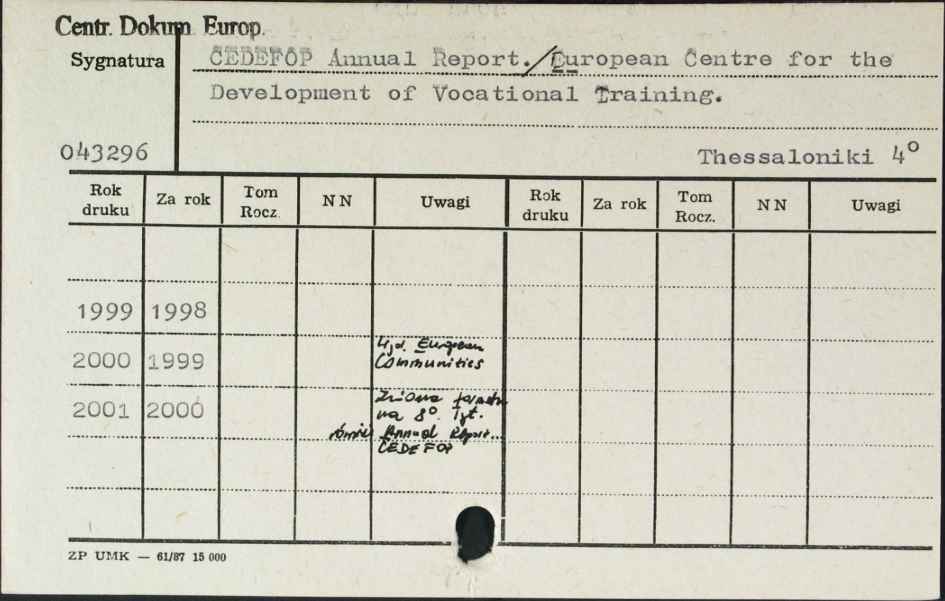 Centr. Dokum. Europ.
Sygnatura
CEDEFOP Annual Report./European Centre for the
Development of Vocational Training.
043296
Thessaloniki 4°
Rok druku Za rok Tom Rocz. NN Uwagi Rok druku Za rok Tom Rocz. NN Uwagi
1999 1998
2000 1999 Wyd. European
Communities
2001 2000 Zmiana formatu
na 8°. Tyt.
również Annual Report...
CEDEFOP
ZP UMK — 61/87 15 000